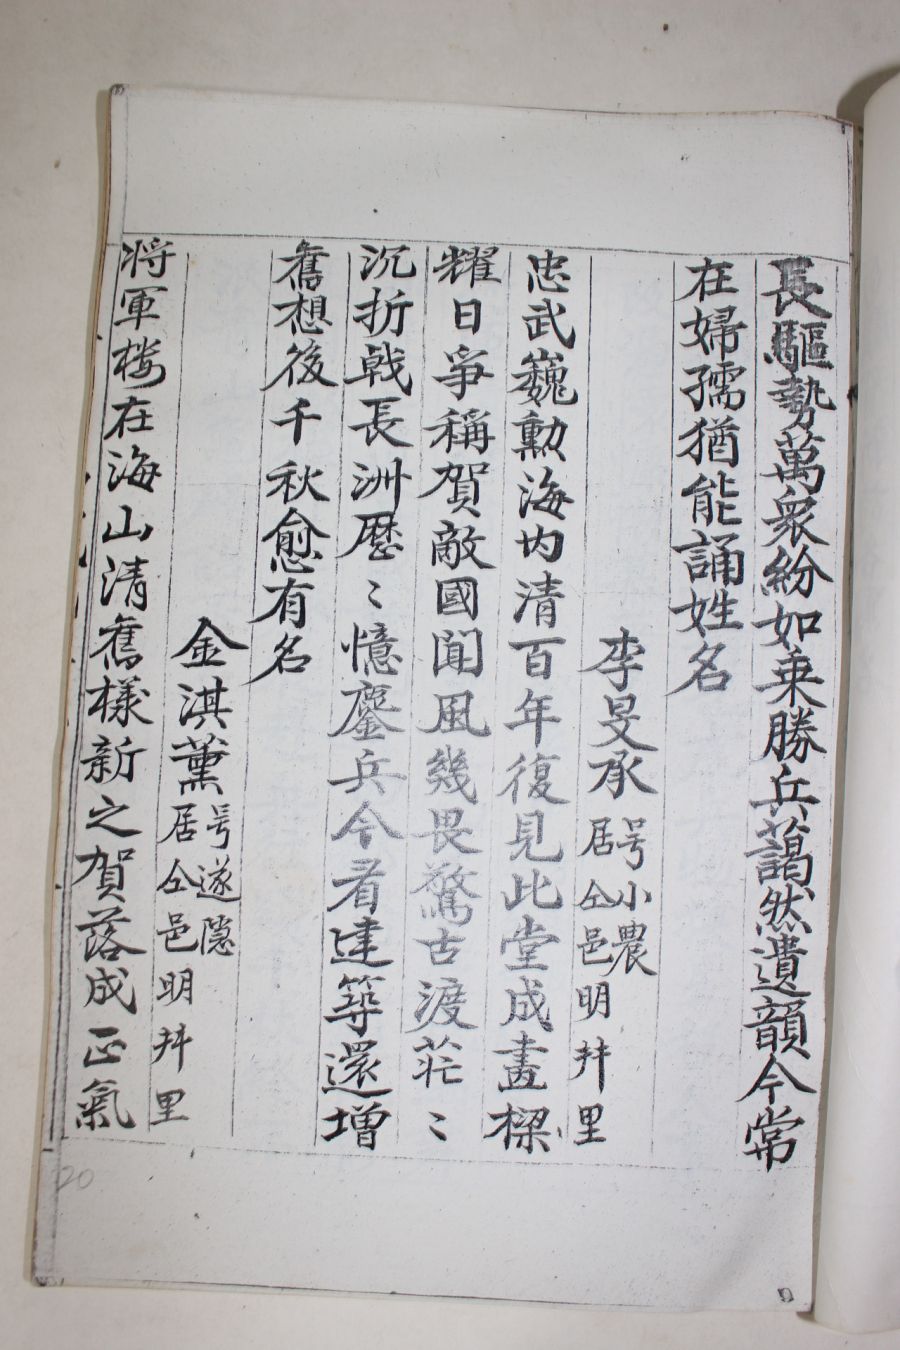 長驅勢萬衆紛如乗勝兵藹然遺韻今常
在婦孺猶能誦姓名
李旻承 号小農 居仝邑明井里
忠武巍勳海內清百年復見此堂成畫樑
耀日爭稱賀敵國聞風幾畏驚古渡茫〻
沉折戟長洲歷〻憶鏖兵今看建築還增
舊想後千秋愈有名
金淇薰 号遂隱 居仝邑明井里
將軍樓在海山清舊樣新之賀落成正氣
20